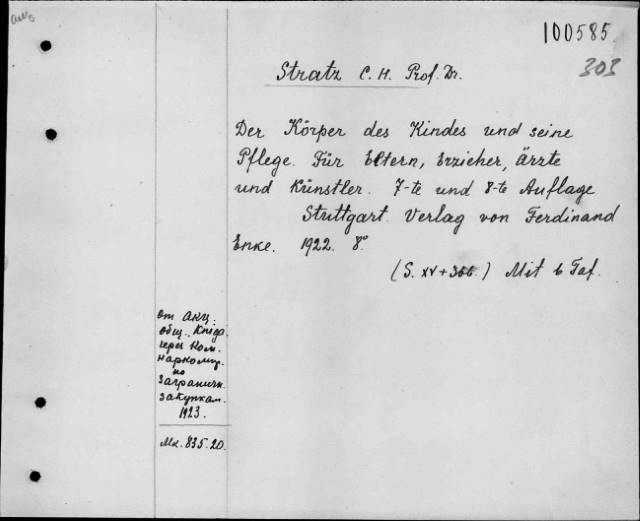 100585.
303
Stratz C. H. Prof. Dr.
Der Körper des Kindes und seine
Pflege. Für Eltern, Erzieher, Ärzte
und Künstler. 7-te und 8-te Auflage
Stuttgart. Verlag von Ferdinand
Enke. 1922. 8°
(S. XV + 386.) Mit 6 Taf.
от акц.
общ. Kniga.
через Ком.
наркомпр.
по
заграничн.
закупкам.
1923.
Мк. 835.20.